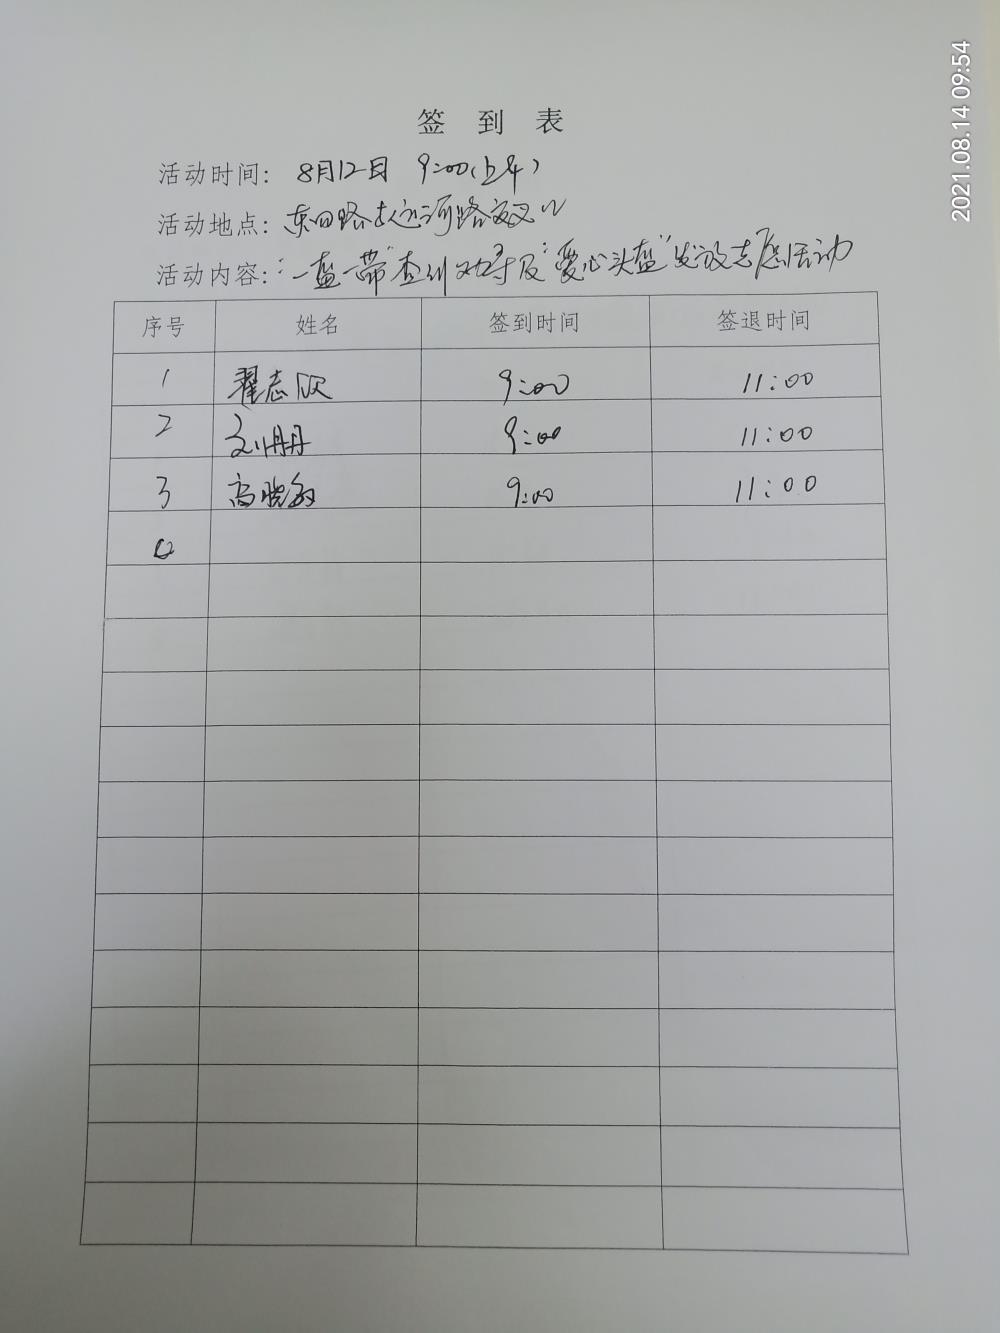 签 到 表
活动时间: 8月12日 9:00(上午)
活动地点: 东四路与运河路交叉口
活动内容: "一盔一带"查纠劝导及"爱心头盔"发放志愿活动
序号 姓名 签到时间 签退时间
1 翟志欣 9:00 11:00
2 刘丹丹 9:00 11:00
3 高晓敏 9:00 11:00
4
2021.08.14 09:54